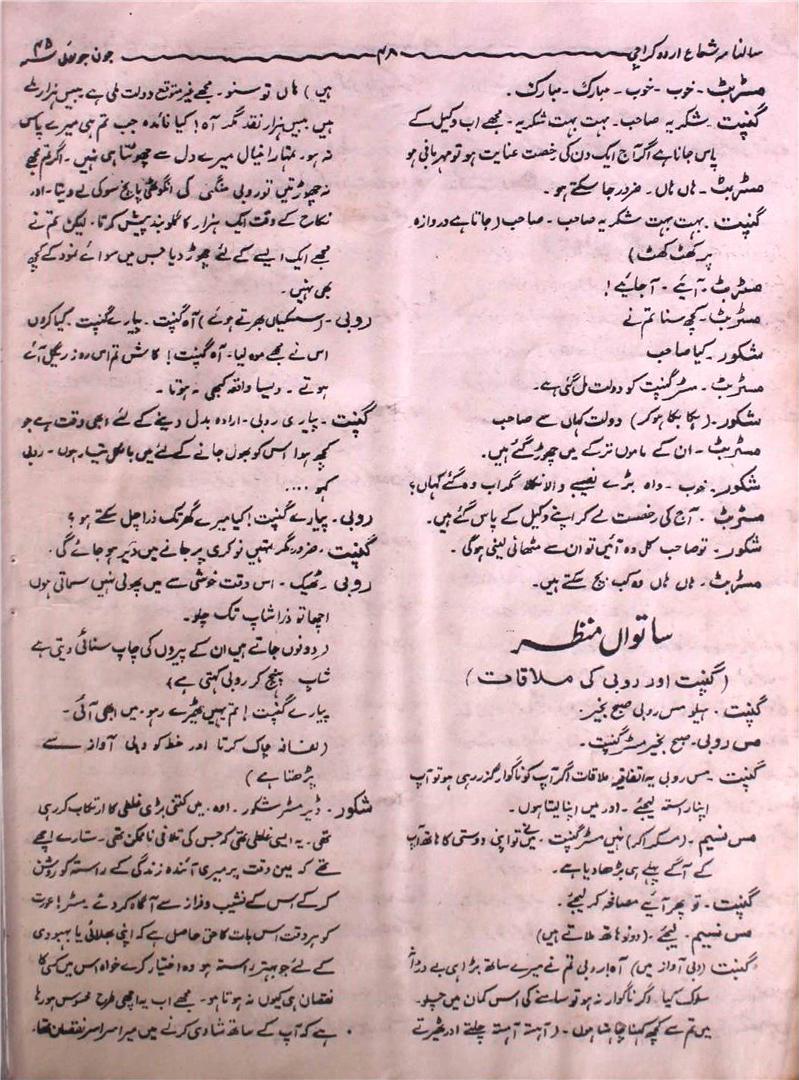 سالنامہ شعاع اردو کراچی ۴۸ جون جولائی ۴۵ء
مسٹر بٹ۔ خوب۔ خوب۔ مبارک۔ مبارک۔
گنپت۔ شکریہ صاحب۔ بہت بہت شکریہ۔ مجھے اب وکیل کے
پاس جانا ہے اگر آج ایک دن کی رخصت عنایت ہو تو مہربانی ہو
مسٹر بٹ۔ ہاں ہاں۔ ضرور جا سکتے ہو۔
گنپت۔ بہت بہت شکریہ صاحب۔ صاحب (جاتا ہے دروازہ
پر کھٹ کھٹ)
مسٹر بٹ۔ آیئے۔ آجایئے!
مسٹر بٹ۔ کچھ سنا تم نے
شکور۔ کیا صاحب
مسٹر بٹ۔ مسٹر گنپت کو دولت مل گئی ہے۔
شکور۔ (ہکا بکا ہو کر) دولت کہاں سے صاحب
مسٹر بٹ۔ ان کے ماموں ترکے میں چھوڑ گئے ہیں۔
شکور۔ خوب۔ واہ بڑے نصیبے والا نکلا مگر اب وہ گئے کہاں؟
مسٹر بٹ۔ آج کی رخصت لے کر اپنے وکیل کے پاس گئے ہیں۔
شکور۔ تو صاحب کل وہ آئیں تو ان سے مٹھائی لینی ہوگی۔
مسٹر بٹ۔ ہاں ہاں وہ کب بچ سکتے ہیں۔
ساتواں منظر
(گنپت اور روبی کی ملاقات)
گنپت۔ ہیلو مس روبی صبح بخیر۔
مس روبی۔ صبح بخیر مسٹر گنپت۔
گنپت۔ مس روبی یہ اتفاقیہ ملاقات اگر آپ کو ناگوار گزر رہی ہو تو آپ
اپنا راستہ لیجئے۔ اور میں اپنا لیتا ہوں۔
مس نسیم۔ (مسکرا کر) نہیں مسٹر گنپت۔ میں نے تو اپنی دوستی کا ہاتھ آپ
کے آگے پہلے ہی بڑھا دیا ہے۔
گنپت۔ تو پھر آیئے مصافحہ کر لیجئے۔
مس نسیم۔ لیجئے۔ (دونو ہاتھ ملاتے ہیں)
گنپت (دبی آواز میں) آہ! روبی تم نے میرے ساتھ بڑا ہی بے دردانہ
سلوک کیا۔ اگر ناگوار نہ ہو تو سامنے کی اس کمان میں چلو۔
میں تم سے کچھ کہنا چاہتا ہوں۔ (آہستہ آہستہ چلتے اور ٹھہرتے
ہیں) ہاں تو سنو۔ مجھے غیر متوقع دولت ملی ہے بیس ہزار ملے
ہیں بیس ہزار نقد مگر آہ! کیا فائدہ جب تم ہی میرے پاس
نہ ہو۔ تمہارا خیال میرے دل سے چھوٹتا ہی نہیں۔ اگر تم مجھے
نہ چھوڑتیں تو روبی منگنی کی انگوٹھی پانچ سو کی لے دیتا۔ اور
نکاح کے وقت ایک ہزار کا گلوبند پیش کرتا۔ لیکن تم نے
مجھے ایک ایسے کے لئے چھوڑ دیا جس میں سوائے نمود کے کچھ
بھی نہیں۔
روبی۔ (سسکیاں بھرتے ہوئے) آہ گنپت۔ پیارے گنپت۔ کیا کروں
اس نے مجھے موہ لیا۔ آہ گنپت! کاش تم اس روز نکل آئے
ہوتے۔ ویسا واقعہ کبھی نہ ہوتا۔
گنپت۔ پیاری روبی۔ ارادہ بدل دینے کے لئے ابھی وقت ہے جو
کچھ ہوا اس کو بھول جانے کے لئے میں بالکل تیار ہوں۔ روبی
کہو ....
روبی۔ پیارے گنپت! کیا میرے گھر تک ذرا چل سکتے ہو؟
گنپت۔ ضرور مگر تمہیں نوکری پر جانے میں دیر ہو جائے گی۔
روبی۔ ٹھیک۔ اس وقت خوشی سے میں پھولی نہیں سماتی ہوں
اچھا تو ذرا شاپ تک چلو۔
(دونوں جاتے ہیں ان کے پیروں کی چاپ سنائی دیتی ہے
شاپ پہنچ کر روبی کہتی ہے)
پیارے گنپت! تم یہیں ٹھیرے رہو۔ میں ابھی آئی۔
(لفافہ چاک کرتا اور خط کو دبی آواز سے
پڑھتا ہے)
شکور۔ ڈیر مسٹر شکور۔ اوہ۔ میں کتنی بڑی غلطی کا ارتکاب کر رہی
تھی۔ یہ ایسی غلطی تھی کہ جس کی تلافی ناممکن تھی۔ ستارے اچھے
تھے کہ عین وقت پر میری آئندہ زندگی کے راستہ کو روشن
کر کے اس کے نشیب و فراز سے آگاہ کر دئے۔ مسٹر! عورت
کو ہر وقت اس بات کا حق حاصل ہے کہ اپنی بھلائی یا بہبودی
کے لئے جو بہتر راستہ ہو وہ اختیار کرے خواہ اس میں کسی کا
نقصان ہی کیوں نہ ہوتا ہو۔ مجھے اب یہ اچھی طرح محسوس ہو رہا
ہے کہ آپ کے ساتھ شادی کرنے میں میرا سراسر نقصان تھا۔